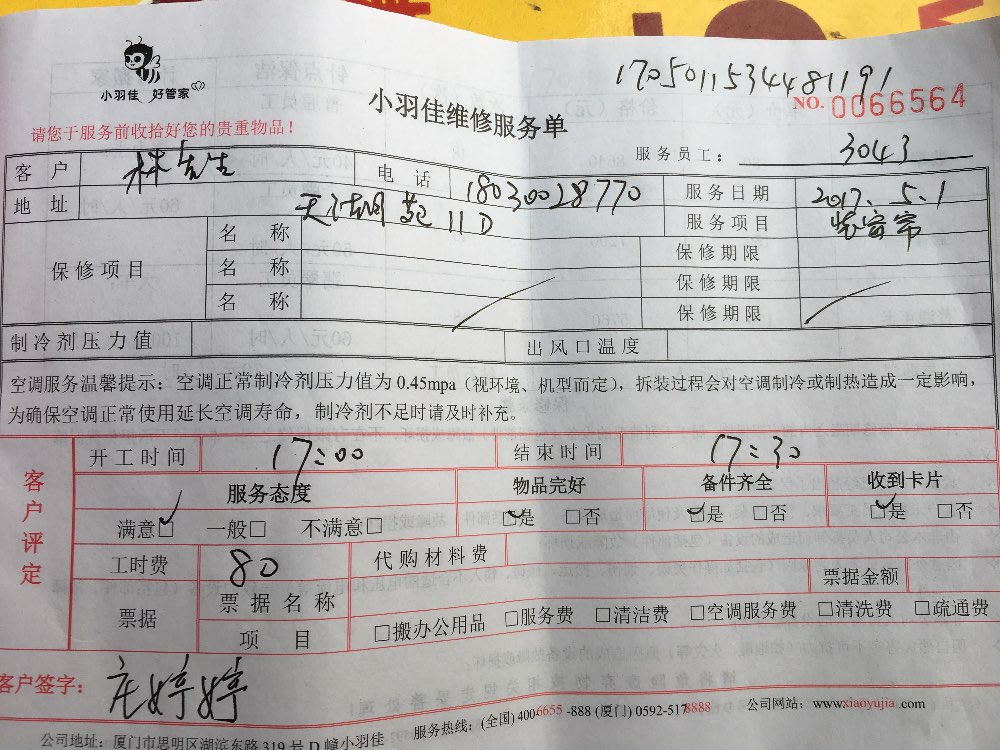 1705011534481191
小羽佳 好管家
小羽佳维修服务单
NO. 0066564
请您于服务前收拾好您的贵重物品！
服务员工： 3043
客户 林先生 电话 18030028770 服务日期 2017.5.1
地址 天湖 11D 服务项目 装窗帘
保修项目 名称 保修期限
名称 保修期限
名称 保修期限
制冷剂压力值 出风口温度
空调服务温馨提示：空调正常制冷剂压力值为 0.45mpa（视环境、机型而定），拆装过程会对空调制冷或制热造成一定影响，
为确保空调正常使用延长空调寿命，制冷剂不足时请及时补充。
客户评定
开工时间 17:00 结束时间 17:30
服务态度 物品完好 备件齐全 收到卡片
满意☑ 一般□ 不满意□ ☑是 □否 ☑是 □否 ☑是 □否
工时费 80 代购材料费
票据 票据名称 票据金额
项目 □搬办公用品 □服务费 □清洁费 □空调服务费 □清洗费 □疏通费
客户签字： 庄婷婷
公司地址：厦门市思明区湖滨东路 319 号 D 幢小羽佳 服务热线：(全国) 400-6655-888 (厦门) 0592-5178888 公司网站：www.xiaoyujia.com